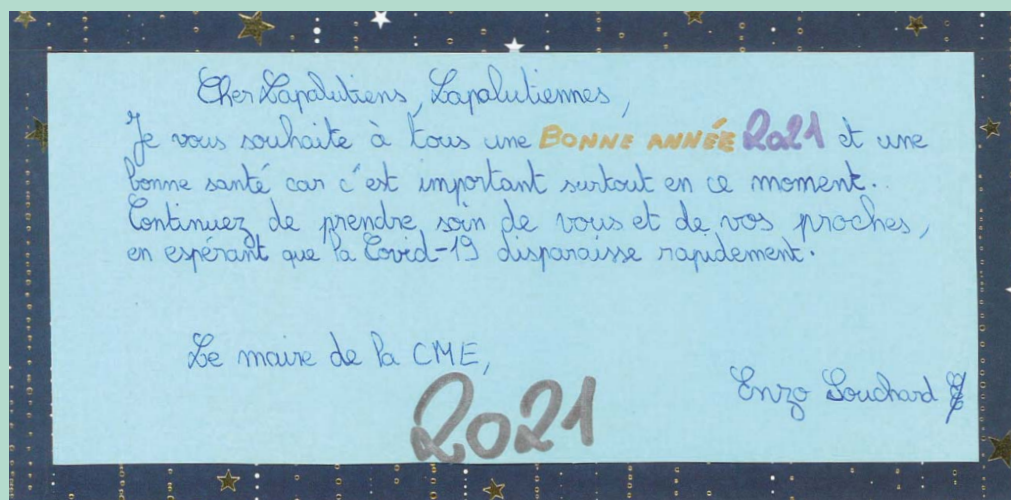 Cher Lapalutiens, Lapalutiennes,
Je vous souhaite à tous une BONNE ANNÉE 2021 et une
bonne santé car c'est important surtout en ce moment.
Continuez de prendre soin de vous et de vos proches,
en espérant que la Covid-19 disparaisse rapidement.
Le maire de la CME,
Enzo Souchard
2021